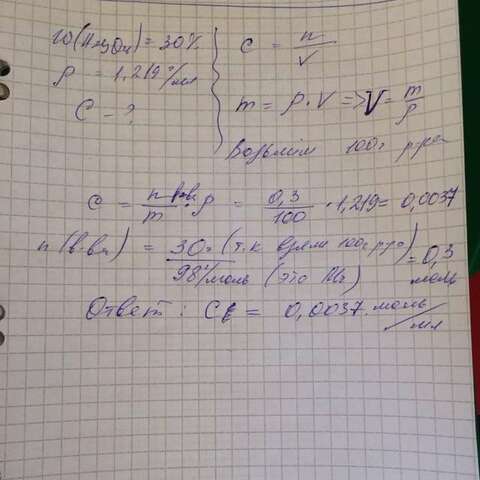 ρ = 1,219 г/мл
C - ?
C = n/V
m = ρ · V => V = m/ρ
Возьмём 100г р-ра
C = n в-ва/m · ρ = 0,3/100 · 1,219 = 0,0037
n(в-ва) = 30г (т.к взяли 100г р-ра)/98г/моль (это Mr) = 0,3 моль
Ответ: C = 0,0037 моль/мл